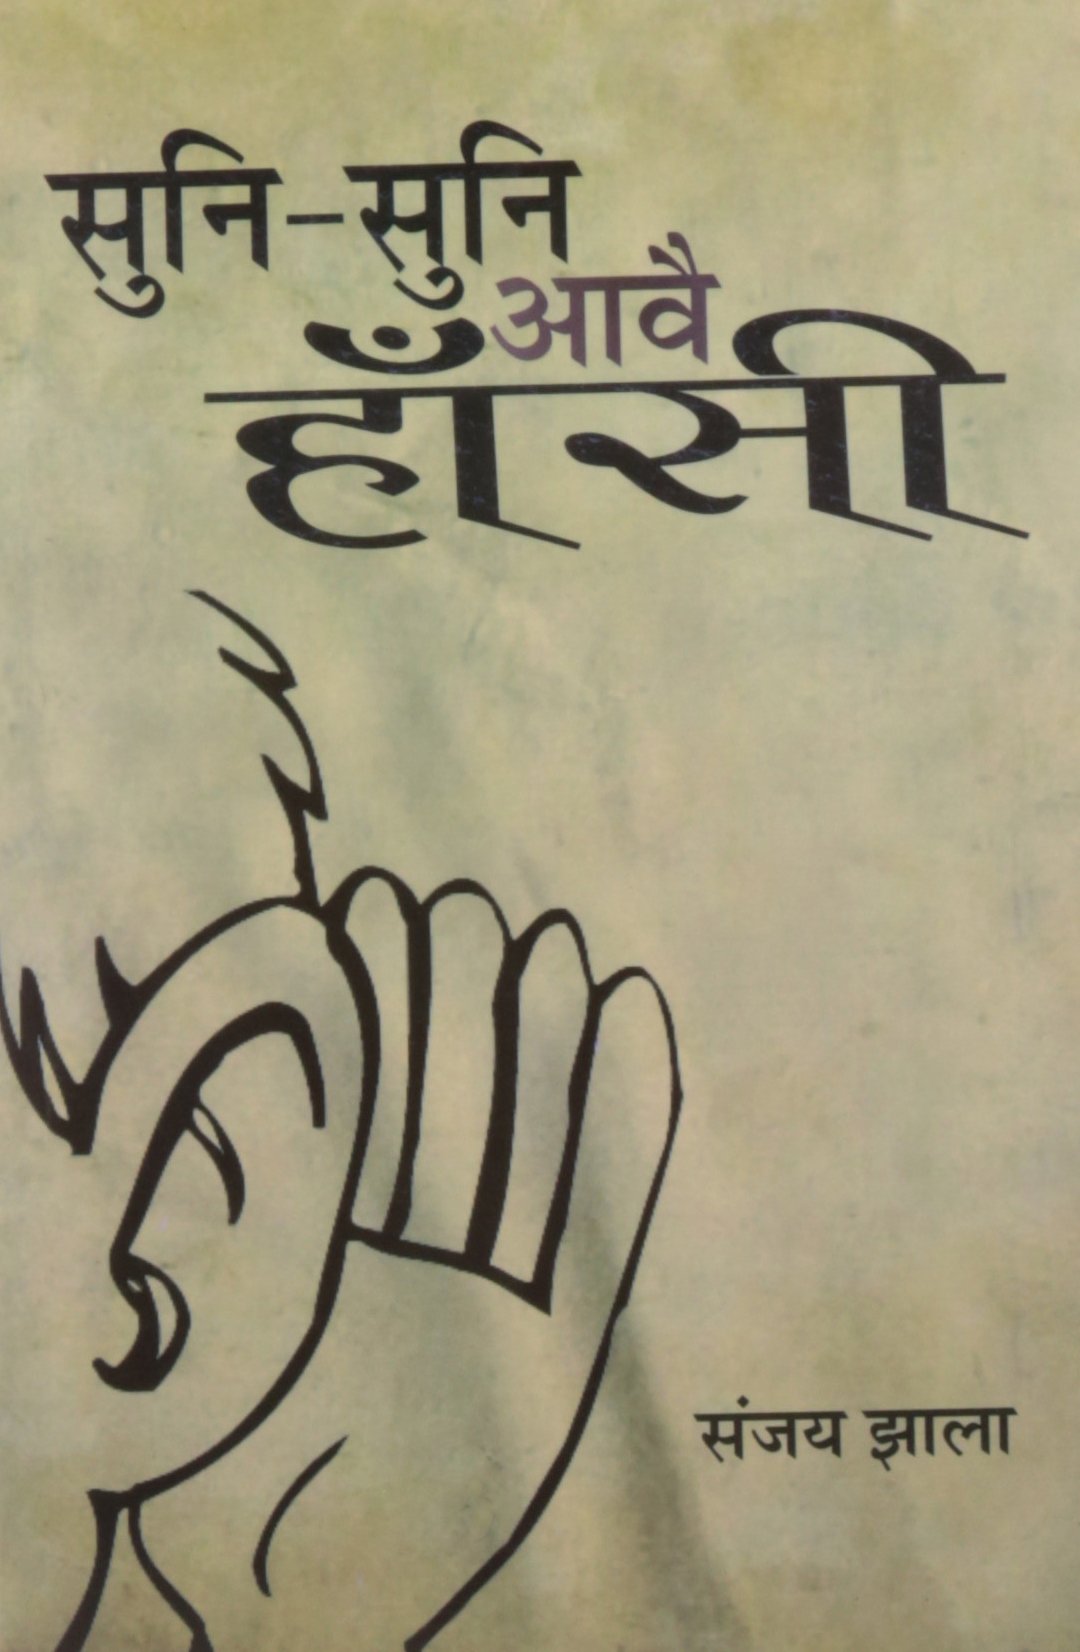 सुनि-सुनि
आवै
हाँसी
संजय झाला